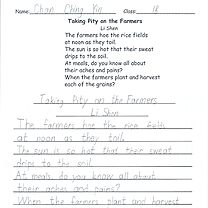 Name: Chan Ching Yin Class: 1B
Taking Pity on the Farmers
Li Shen
The farmers hoe the rice fields
at noon as they toil.
The sun is so hot that their sweat
drips to the soil.
At meals, do you know all about
their aches and pains?
When the farmers plant and harvest
each of the grains?
Taking Pity on the Farmers
Li Shen
The farmers hoe the rice fields
at noon as they toil.
The sun is so hot that their sweat
drips to the soil.
At meals, do you know all about
their aches and pains?
When the farmers plant and harvest